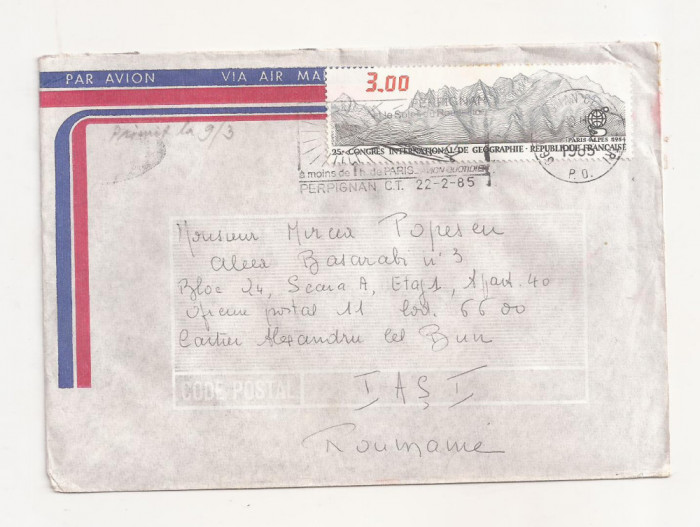 PAR AVION VIA AIR MA
3.00
PERPIGNAN
Primit la 9/3
PARIS ALPES 1984
25e CONGRÈS INTERNATIONAL DE GÉOGRAPHIE · RÉPUBLIQUE FRANÇAISE
1985
à moins de 1 h. de PARIS
P.O.
PERPIGNAN C.T. 22-2-85
Monsieur Mircea Popescu
Aleea Basarabi n° 3
Bloc 24, Scara A, Etaj 1, Apart. 40
Oficiu postal 11 Cod. 6600
Cartier Alexandru cel Bun
CODE POSTAL
IAŞI
Roumanie